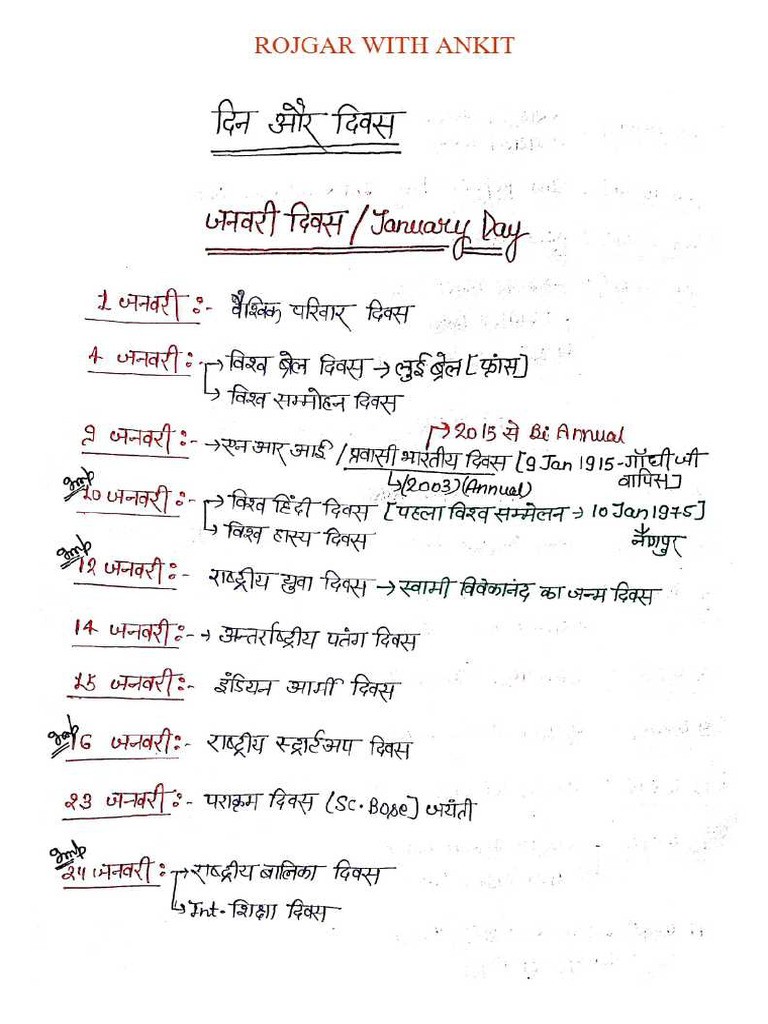 ROJGAR WITH ANKIT
दिन और दिवस
जनवरी दिवस / January Day
1 जनवरी :- वैश्विक परिवार दिवस
4 जनवरी :- → विश्व ब्रेल दिवस → लुई ब्रेल [फ्रांस]
→ विश्व सम्मोहन दिवस
→ 2015 से Bi Annual
9 जनवरी :- → एन आर आई / प्रवासी भारतीय दिवस [9 Jan 1915 - गाँधी जी वापिस]
→ (2003) (Annual)
Imp 10 जनवरी :- → विश्व हिंदी दिवस [पहला विश्व सम्मेलन → 10 Jan 1975]
→ विश्व हास्य दिवस
Imp 12 जनवरी :- राष्ट्रीय युवा दिवस → स्वामी विवेकानंद का जन्म दिवस
14 जनवरी :- → अन्तर्राष्ट्रीय पतंग दिवस
15 जनवरी :- इंडियन आर्मी दिवस
Imp 16 जनवरी :- राष्ट्रीय स्ट्रार्टअप दिवस
23 जनवरी :- पराक्रम दिवस (SC. Bose] जयंती
Imp 24 जनवरी :- → राष्ट्रीय बालिका दिवस
→ Int. शिक्षा दिवस